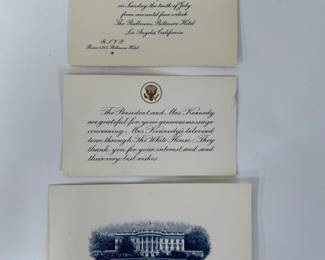 on Sunday the tenth of July
from one until four o'clock
The Ballroom, Biltmore Hotel
Los Angeles, California
R.S.V.P.
Room 4315 Biltmore Hotel
The President and Mrs. Kennedy
are grateful for your generous message
concerning Mrs. Kennedy's televised
tour through The White House. They
thank you for your interest and send
their very best wishes